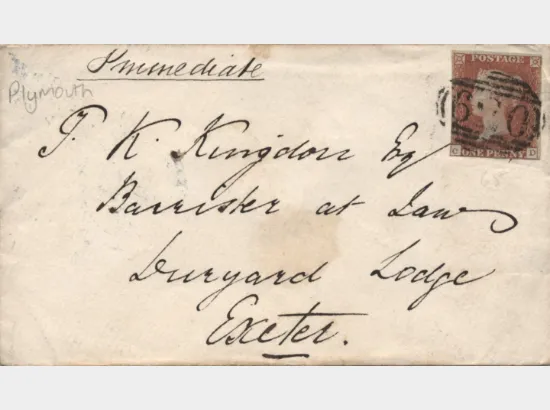 Immediate
Plymouth
POSTAGE
T. K. Kingdon Esq
Barrister at Law
Duryard Lodge
Exeter.
ONE PENNY
C D